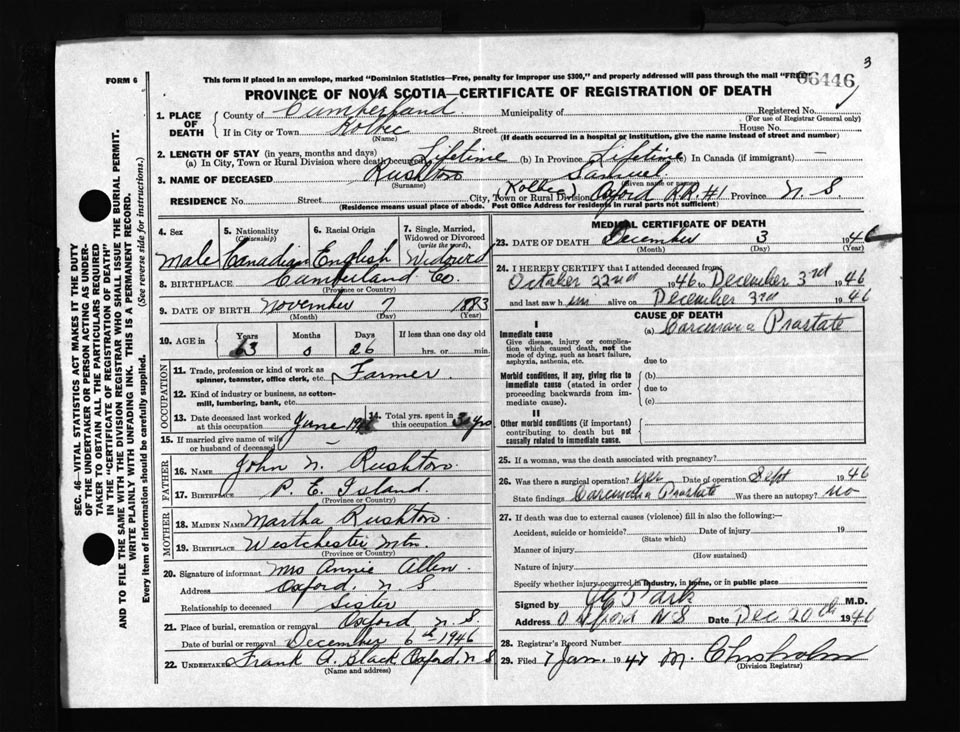 3
FORM 6
This form if placed in an envelope, marked "Dominion Statistics—Free, penalty for improper use $300," and properly addressed will pass through the mail "FREE"
66446
PROVINCE OF NOVA SCOTIA—CERTIFICATE OF REGISTRATION OF DEATH
SEC. 46—VITAL STATISTICS ACT MAKES IT THE DUTY
OF THE UNDERTAKER OR PERSON ACTING AS UNDER-
TAKER TO OBTAIN ALL THE PARTICULARS REQUIRED
IN THE "CERTIFICATE OF REGISTRATION OF DEATH"
AND TO FILE THE SAME WITH THE DIVISION REGISTRAR WHO SHALL ISSUE THE BURIAL PERMIT.
WRITE PLAINLY WITH UNFADING INK. THIS IS A PERMANENT RECORD.
Every item of information should be carefully supplied. (See reverse side for instructions.)
1. PLACE OF DEATH
County of Cumberland Municipality of Registered No.
(For use of Registrar General only)
If in City or Town Kolbec Street House No.
(Name) (If death occurred in a hospital or institution, give the name instead of street and number)
2. LENGTH OF STAY (in years, months and days)
(a) In City, Town or Rural Division where death occurred Lifetime (b) In Province Lifetime (c) In Canada (if immigrant) —
3. NAME OF DECEASED Rushton Samuel
(Surname) (Given name or names)
RESIDENCE No. Street City, Town or Rural Division (Kolbec) Oxford R.R. #1 Province N. S
(Residence means usual place of abode. Post Office Address for residents in rural parts not sufficient)
4. Sex Male
5. Nationality (Citizenship) Canadian
6. Racial Origin English
7. Single, Married, Widowed or Divorced (write the word) Widowed
8. BIRTHPLACE Cumberland Co.
(Province or Country)
9. DATE OF BIRTH November 7 1883
(Month) (Day) (Year)
10. AGE in Years 63 Months 0 Days 26 If less than one day old hrs. or min.
OCCUPATION
11. Trade, profession or kind of work as spinner, teamster, office clerk, etc. Farmer.
12. Kind of industry or business, as cotton-mill, lumbering, bank, etc.
13. Date deceased last worked at this occupation June 19
14. Total yrs. spent in this occupation yrs
15. If married give name of wife or husband of deceased —
FATHER
16. NAME John N. Rushton.
17. BIRTHPLACE P. E. Island.
(Province or Country)
MOTHER
18. MAIDEN NAME Martha Rushton.
19. BIRTHPLACE Westchester Mtn.
(Province or Country)
20. Signature of informant Mrs Annie Allen.
Address Oxford, N. S
Relationship to deceased Sister
21. Place of burial, cremation or removal Oxford N. S.
Date of burial or removal December 6th 1946
22. UNDERTAKER Frank A. Black Oxford, N S
(Name and address)
MEDICAL CERTIFICATE OF DEATH
23. DATE OF DEATH December 3 1946
(Month) (Day) (Year)
24. I HEREBY CERTIFY that I attended deceased from
October 22nd 1946 to December 3rd 1946
and last saw him alive on December 3rd 1946
CAUSE OF DEATH
I
Immediate cause
Give disease, injury or complication which caused death, not the mode of dying, such as heart failure, asphyxia, asthenia, etc.
(a) Carcinoma Prostate
due to
Morbid conditions, if any, giving rise to immediate cause (stated in order proceeding backwards from immediate cause).
(b)
due to
(c)
II
Other morbid conditions (if important) contributing to death but not causally related to immediate cause.
25. If a woman, was the death associated with pregnancy?
26. Was there a surgical operation? yes Date of operation Sept 1946
State findings Carcinoma Prostate Was there an autopsy? no
27. If death was due to external causes (violence) fill in also the following:—
Accident, suicide or homicide? Date of injury 19
(State which)
Manner of injury
(How sustained)
Nature of injury
Specify whether injury occurred in industry, in home, or in public place
Signed by Park M.D.
Address Oxford NS Date Dec 20th 1946
28. Registrar's Record Number
29. Filed 7 Jan. 1947 M. Chisholm
(Division Registrar)